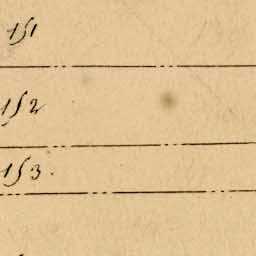 151
152
153.